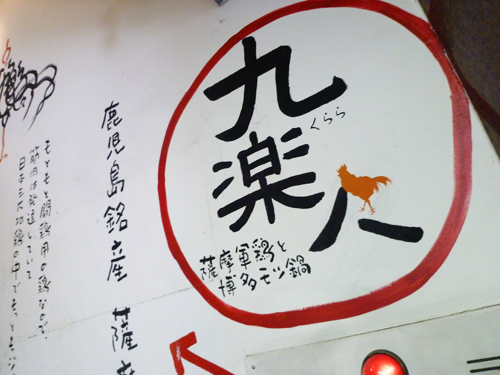 九楽八
くらら
薩摩軍鶏と
博多モツ鍋
鹿児島銘産 薩
もともと闘鶏用の鶏なので、
筋肉は発達していて
日本三大地鶏の中でもっと